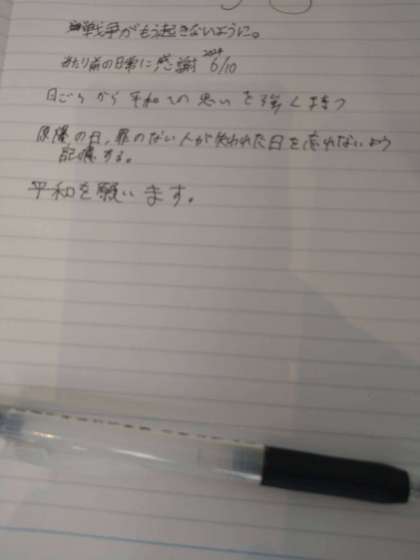 戦争がもう起きないように。
あたり前の日常に感謝 2024 6/10
日ごろから平和への思いを強く持つ
原爆の日、罪のない人が失われた日を忘れないよう
記憶する。
平和を願います。